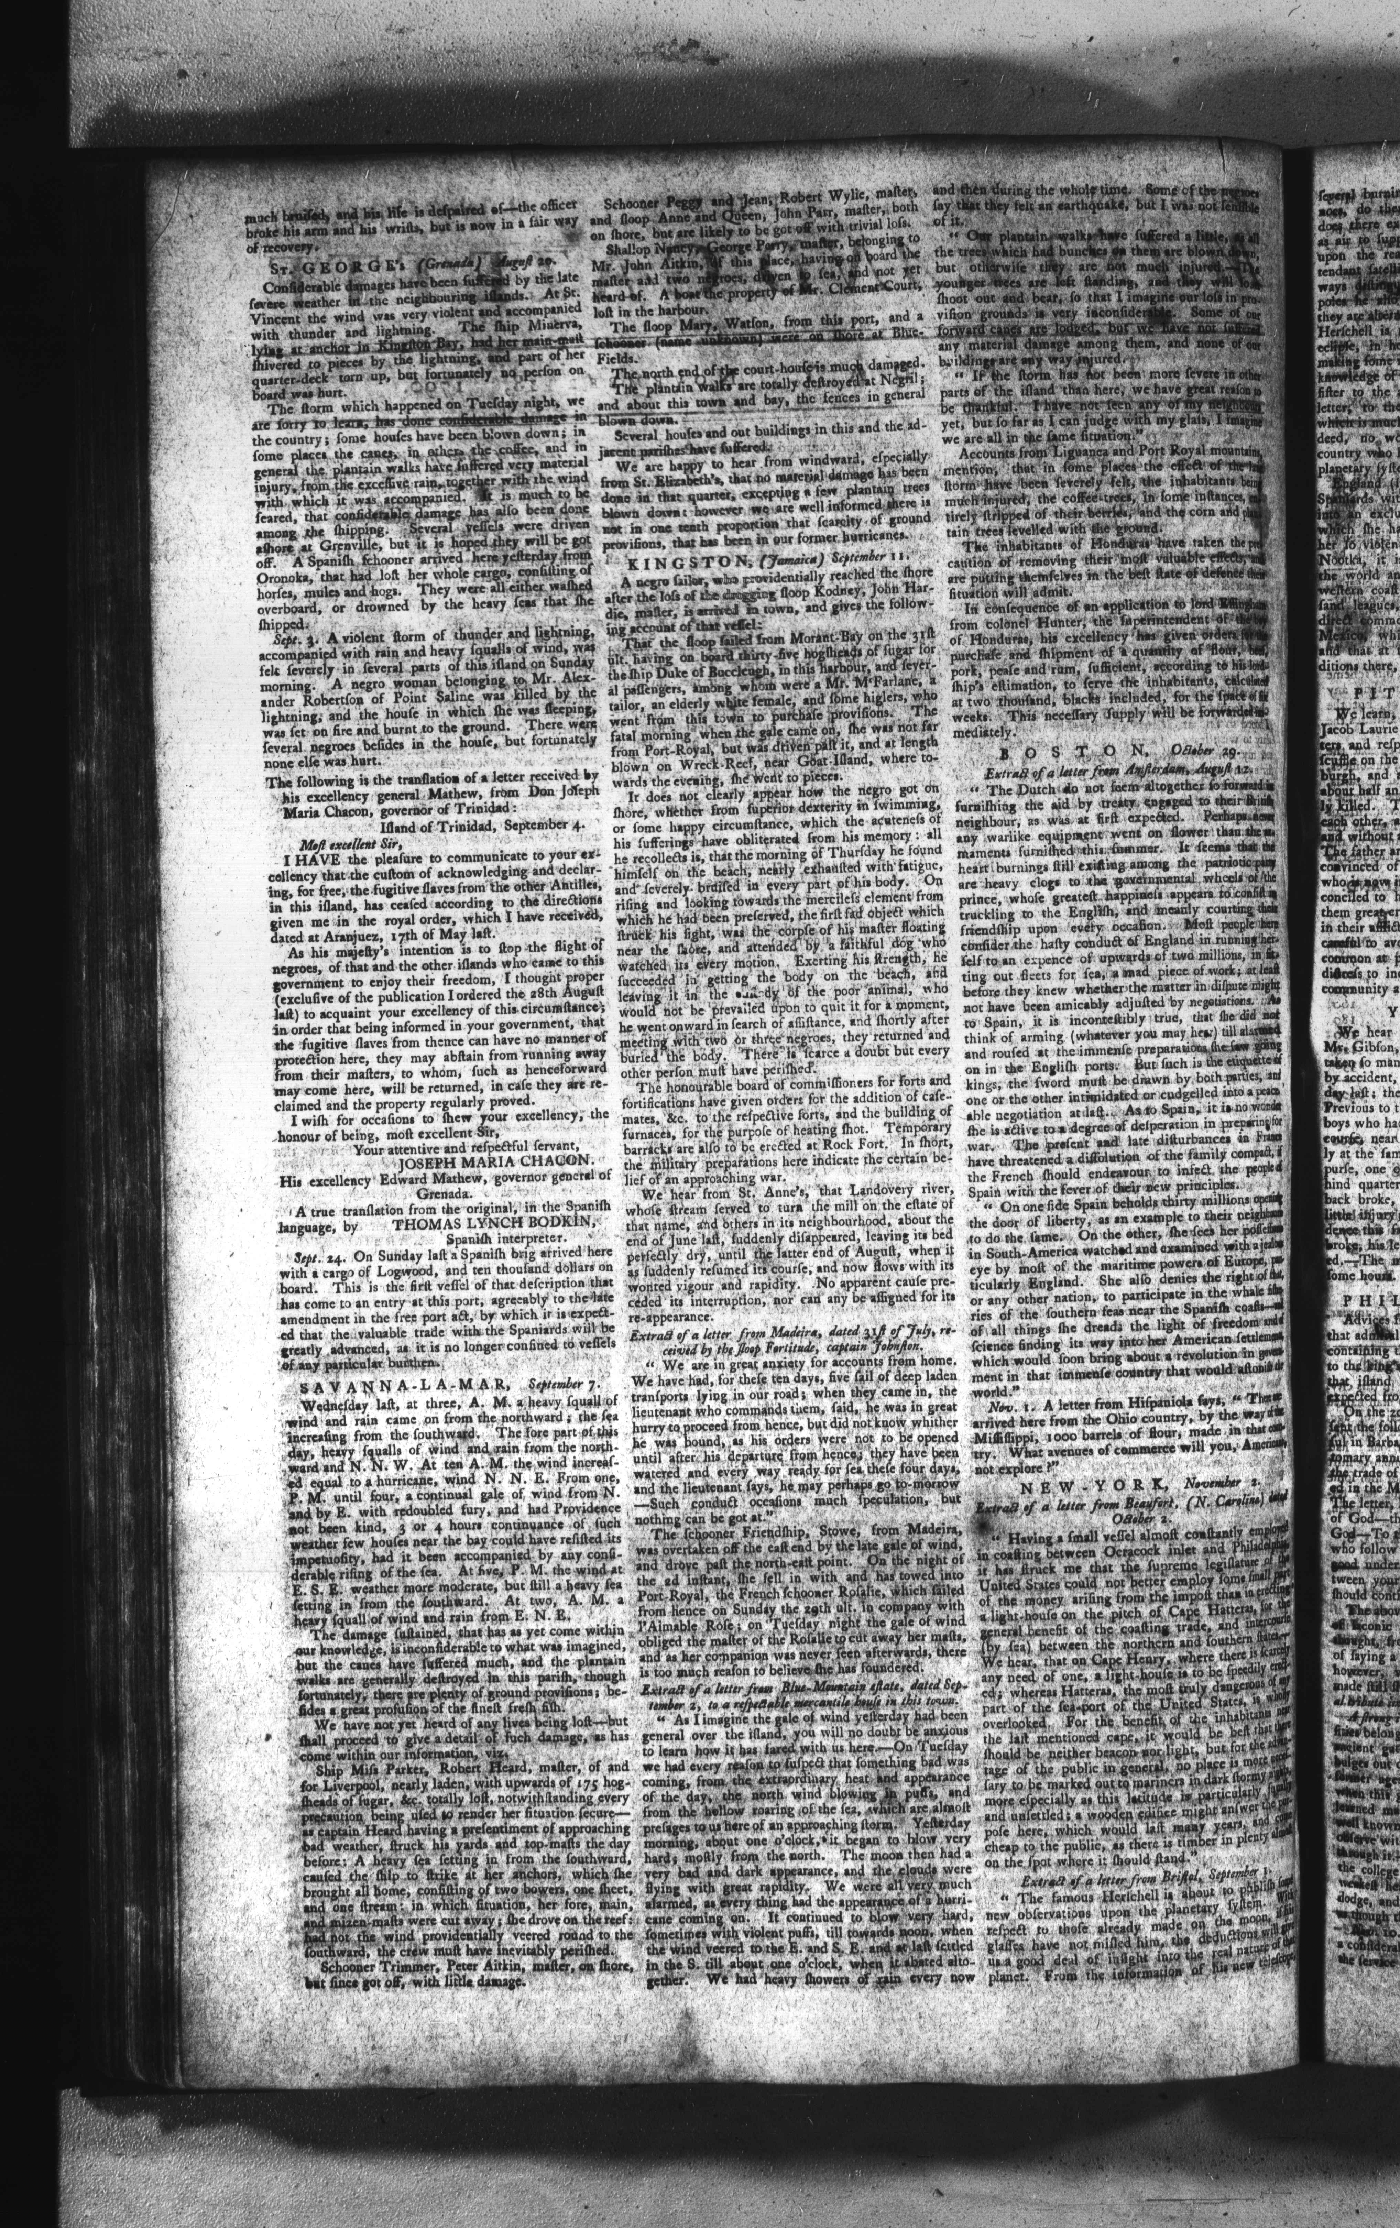 much bruised, and his life is despaired of—the officer
broke his arm and his wrists, but is now in a fair way
of recovery.
St. GEORGE's (Grenada) August 20.
Considerable damages have been suffered by the late
severe weather in the neighbouring islands. At St.
Vincent the wind was very violent and accompanied
with thunder and lightning. The ship Minerva,
lying at anchor in Kingston Bay, had her main-mast
shivered to pieces by the lightning, and part of her
quarter-deck torn up, but fortunately no person on
board was hurt.
The storm which happened on Tuesday night, we
are sorry to learn, has done considerable damage in
the country; some houses have been blown down; in
some places the canes, in others the coffee, and in
general the plantain walks have suffered very material
injury, from the excessive rain, together with the wind
with which it was accompanied. It is much to be
feared, that considerable damage has also been done
among the shipping. Several vessels were driven
ashore at Grenville, but it is hoped they will be got
off. A Spanish schooner arrived here yesterday from
Oronoka, that had lost her whole cargo, consisting of
horses, mules and hogs. They were all either washed
overboard, or drowned by the heavy seas that she
shipped.
Sept. 3. A violent storm of thunder and lightning,
accompanied with rain and heavy squalls of wind, was
felt severely in several parts of this island on Sunday
morning. A negro woman belonging to Mr. Alex-
ander Robertson of Point Saline was killed by the
lightning, and the house in which she was sleeping,
was set on fire and burnt to the ground. There were
several negroes besides in the house, but fortunately
none else was hurt.
The following is the translation of a letter received by
his excellency general Mathew, from Don Joseph
Maria Chacon, governor of Trinidad:
Island of Trinidad, September 4.
Most excellent Sir,
I HAVE the pleasure to communicate to your ex-
cellency that the custom of acknowledging and declar-
ing, for free, the fugitive slaves from the other Antilles,
in this island, has ceased according to the directions
given me in the royal order, which I have received,
dated at Aranjuez, 17th of May last.
As his majesty's intention is to stop the flight of
negroes, of that and the other islands who came to this
government to enjoy their freedom, I thought proper
(exclusive of the publication I ordered the 28th August
last) to acquaint your excellency of this circumstance;
in order that being informed in your government, that
the fugitive slaves from thence can have no manner of
protection here, they may abstain from running away
from their masters, to whom, such as henceforward
may come here, will be returned, in case they are re-
claimed and the property regularly proved.
I wish for occasions to shew your excellency, the
honour of being, most excellent Sir,
Your attentive and respectful servant,
JOSEPH MARIA CHACON.
His excellency Edward Mathew, governor general of
Grenada.
A true translation from the original, in the Spanish
language, by THOMAS LYNCH BODKIN,
Spanish interpreter.
Sept. 24. On Sunday last a Spanish brig arrived here
with a cargo of Logwood, and ten thousand dollars on
board. This is the first vessel of that description that
has come to an entry at this port, agreeably to the late
amendment in the free port act, by which it is expect-
ed that the valuable trade with the Spaniards will be
greatly advanced, as it is no longer confined to vessels
of any particular burthen.
SAVANNA-LA-MAR, September 7.
Wednesday last, at three, A. M. a heavy squall of
wind and rain came on from the northward; the sea
increasing from the southward. The fore part of this
day, heavy squalls of wind and rain from the north-
ward and N. N. W. At ten A. M. the wind increas-
ed equal to a hurricane, wind N. N. E. From one,
P. M. until four, a continual gale of wind from N.
and by E. with redoubled fury, and had Providence
not been kind, 3 or 4 hours continuance of such
weather few houses near the bay could have resisted its
impetuosity, had it been accompanied by any consi-
derable rising of the sea. At five, P. M. the wind at
E. S. E. weather more moderate, but still a heavy sea
setting in from the southward. At two, A. M. a
heavy squall of wind and rain from E. N. E.
The damage sustained, that has as yet come within
our knowledge, is inconsiderable to what was imagined,
but the canes have suffered much, and the plantain
walks are generally destroyed in this parish, though
fortunately, there are plenty of ground provisions; be-
sides a great profusion of the finest fresh fish.
We have not yet heard of any lives being lost—but
shall proceed to give a detail of such damage, as has
come within our information, viz.
Ship Miss Parker, Robert Heard, master, of and
for Liverpool, nearly laden, with upwards of 175 hog-
sheads of sugar, &c. totally lost, notwithstanding every
precaution being used to render her situation secure—
as captain Heard having a presentiment of approaching
bad weather, struck his yards and top-masts the day
before: A heavy sea setting in from the southward,
caused the ship to strike at her anchors, which she
brought all home, consisting of two bowers, one sheet,
and one stream: in which situation, her fore, main,
and mizen-masts were cut away; she drove on the reef:
had not the wind providentially veered round to the
southward, the crew must have inevitably perished.
Schooner Trimmer, Peter Aitkin, master, on shore,
but since got off, with little damage.
Schooner Peggy and Jean, Robert Wylie, master,
and sloop Anne and Queen, John Parr, master, both
on shore, but are likely to be got off with trivial loss.
Shallop Nancy, George Perry, master, belonging to
Mr. John Aitkin, of this place, having on board the
master and two negroes, driven to sea, and not yet
heard of. A boat the property of Mr. Clement Court,
lost in the harbour.
The sloop Mary, Watson, from this port, and a
schooner (name unknown) were on shore at Blue-
Fields.
The north end of the court-house is much damaged.
The plantain walks are totally destroyed at Negril;
and about this town and bay, the fences in general
blown down.
Several houses and out buildings in this and the ad-
jacent parishes have suffered.
We are happy to hear from windward, especially
from St. Elizabeth's, that no material damage has been
done in that quarter, excepting a few plantain trees
blown down: however we are well informed there is
not in one tenth proportion that scarcity of ground
provisions, that has been in our former hurricanes.
KINGSTON, (Jamaica) September 11.
A negro sailor, who providentially reached the shore
after the loss of the drogging sloop Rodney, John Har-
die, master, is arrived in town, and gives the follow-
ing account of that vessel:
That the sloop sailed from Morant-Bay on the 31st
ult. having on board thirty-five hogsheads of sugar for
the ship Duke of Buccleugh, in this harbour, and sever-
al passengers, among whom were a Mr. M'Farlane, a
tailor, an elderly white female, and some higlers, who
went from this town to purchase provisions. The
fatal morning when the gale came on, she was not far
from Port-Royal, but was driven past it, and at length
blown on Wreck-Reef, near Goat-Island, where to-
wards the evening, she went to pieces.
It does not clearly appear how the negro got on
shore, whether from superior dexterity in swimming,
or some happy circumstance, which the acuteness of
his sufferings have obliterated from his memory: all
he recollects is, that the morning of Thursday he found
himself on the beach, nearly exhausted with fatigue,
and severely bruised in every part of his body. On
rising and looking towards the merciless element from
which he had been preserved, the first sad object which
struck his sight, was the corpse of his master floating
near the shore, and attended by a faithful dog who
watched its every motion. Exerting his strength, he
succeeded in getting the body on the beach, and
leaving it in the custody of the poor animal, who
would not be prevailed upon to quit it for a moment,
he went onward in search of assistance, and shortly after
meeting with two or three negroes, they returned and
buried the body. There is scarce a doubt but every
other person must have perished.
The honourable board of commissioners for forts and
fortifications have given orders for the addition of case-
mates, &c. to the respective forts, and the building of
furnaces, for the purpose of heating shot. Temporary
barracks are also to be erected at Rock Fort. In short,
the military preparations here indicate the certain be-
lief of an approaching war.
We hear from St. Anne's, that Landovery river,
whose stream served to turn the mill on the estate of
that name, and others in its neighbourhood, about the
end of June last, suddenly disappeared, leaving its bed
perfectly dry, until the latter end of August, when it
as suddenly resumed its course, and now flows with its
wonted vigour and rapidity. No apparent cause pre-
ceded its interruption, nor can any be assigned for its
re-appearance.
Extract of a letter from Madeira, dated 31st of July, re-
ceived by the sloop Fortitude, captain Johnston.
" We are in great anxiety for accounts from home.
We have had, for these ten days, five sail of deep laden
transports lying in our road; when they came in, the
lieutenant who commands them, said, he was in great
hurry to proceed from hence, but did not know whither
he was bound, as his orders were not to be opened
until after his departure from hence; they have been
watered and every way ready for sea these four days,
and the lieutenant says, he may perhaps go to-morrow
—Such conduct occasions much speculation, but
nothing can be got at."
The schooner Friendship, Stowe, from Madeira,
was overtaken off the east end by the late gale of wind,
and drove past the north-east point. On the night of
the 2d instant, she fell in with and has towed into
Port-Royal, the French schooner Rosalie, which sailed
from hence on Sunday the 29th ult. in company with
l'Aimable Rose; on Tuesday night the gale of wind
obliged the master of the Rosalie to cut away her masts,
and as her companion was never seen afterwards, there
is too much reason to believe she has foundered.
Extract of a letter from Blue-Mountain estate, dated Sep-
tember 2, to a respectable mercantile house in this town.
" As I imagine the gale of wind yesterday had been
general over the island, you will no doubt be anxious
to learn how it has fared with us here.—On Tuesday
we had every reason to suspect that something bad was
coming, from the extraordinary heat and appearance
of the day, the north wind blowing in puffs, and
from the hollow roaring of the sea, which are almost
presages to us here of an approaching storm. Yesterday
morning, about one o'clock, it began to blow very
hard; mostly from the north. The moon then had a
very bad and dark appearance, and the clouds were
flying with great rapidity. We were all very much
alarmed, as every thing had the appearance of a hurri-
cane coming on. It continued to blow very hard,
sometimes with violent puffs, till towards noon, when
the wind veered to the E. and S. E. and at last settled
in the S. till about one o'clock, when it abated alto-
gether. We had heavy showers of rain every now
and then during the whole time. Some of the negroes
say that they felt an earthquake, but I was not sensible
of it.
" Our plantain walks have suffered a little, as all
the trees which had bunches on them are blown down,
but otherwise they are not much injured.—The
younger trees are left standing, and they will soon
shoot out and bear, so that I imagine our loss in pro-
vision grounds is very inconsiderable. Some of our
forward canes are lodged, but we have not suffered
any material damage among them, and none of our
buildings are any way injured.
" If the storm has not been more severe in other
parts of the island than here, we have great reason to
be thankful. I have not seen any of my neighbours
yet, but so far as I can judge with my glass, I imagine
we are all in the same situation."
Accounts from Liguanea and Port Royal mountains,
mention, that in some places the effect of the late
storm have been severely felt, the inhabitants being
much injured, the coffee-trees, in some instances, en-
tirely stripped of their berries, and the corn and plan-
tain trees levelled with the ground.
The inhabitants of Honduras have taken the pre-
caution of removing their most valuable effects, and
are putting themselves in the best state of defence their
situation will admit.
In consequence of an application to lord Effingham
from colonel Hunter, the superintendent of the bay
of Honduras, his excellency has given orders for the
purchase and shipment of a quantity of flour, beef,
pork, pease and rum, sufficient, according to his lord-
ship's estimation, to serve the inhabitants, calculated
at two thousand, blacks included, for the space of six
weeks. This necessary supply will be forwarded im-
mediately.
BOSTON, October 29.
Extract of a letter from Amsterdam, August 12.
" The Dutch do not seem altogether so forward in
furnishing the aid by treaty engaged to their British
neighbour, as was at first expected. Perhaps never
any warlike equipment went on slower than the ar-
maments furnished this summer. It seems that the
heart burnings still existing among the patriotic party
are heavy clogs to the governmental wheels of the
prince, whose greatest happiness appears to consist in
truckling to the English, and meanly courting their
friendship upon every occasion. Most people here
consider the hasty conduct of England in running her-
self to an expence of upwards of two millions, in fit-
ting out fleets for sea, a mad piece of work; at least
before they knew whether the matter in dispute might
not have been amicably adjusted by negotiations. As
to Spain, it is incontestibly true, that she did not
think of arming (whatever you may hear) till alarmed
and roused at the immense preparations she saw going
on in the English ports. But such is the etiquette of
kings, the sword must be drawn by both parties, and
one or the other intimidated or cudgelled into a peace-
able negotiation at last. As to Spain, it is no wonder
she is active to a degree of desperation in preparing for
war. The present and late disturbances in France
have threatened a dissolution of the family compact, if
the French should endeavour to infect the people of
Spain with the fever of their new principles.
" On one side Spain beholds thirty millions opening
the door of liberty, as an example to their neighbours
to do the same. On the other, she sees her possessions
in South-America watched and examined with a jealous
eye by most of the maritime powers of Europe, par-
ticularly England. She also denies the right of that,
or any other nation, to participate in the whale fishe-
ries of the southern seas near the Spanish coasts—and
of all things she dreads the light of freedom and of
science finding its way into her American settlements,
which would soon bring about a revolution in govern-
ment in that immense country that would astonish the
world."
Nov. 1. A letter from Hispaniola says, " There
arrived here from the Ohio country, by the way of the
Missisippi, 1000 barrels of flour, made in that coun-
try. What avenues of commerce will you, Americans,
not explore!"
NEW-YORK, November 2.
Extract of a letter from Beaufort, (N. Carolina) dated
October 2.
" Having a small vessel almost constantly employed
in coasting between Ocracock inlet and Philadelphia,
it has struck me that the supreme legislature of the
United States could not better employ some small part
of the money arising from the impost than in erecting
a light-house on the pitch of Cape Hatteras, for the
general benefit of the coasting trade, and intercourse
(by sea) between the northern and southern states.—
We hear, that on Cape Henry, where there is scarcely
any need of one, a light-house is to be speedily erect-
ed; whereas Hatteras, the most truly dangerous of any
part of the sea-port of the United States, is wholly
overlooked. For the benefit of the inhabitants near
the last mentioned cape, it would be best that there
should be neither beacon nor light, but for the advan-
tage of the public in general, no place is more neces-
sary to be marked out to mariners in dark stormy nights,
more especially as this latitude is particularly squally
and unsettled; a wooden edifice might answer the pur-
pose here, which would last many years, and come
cheap to the public, as there is timber in plenty almost
on the spot where it should stand."
Extract of a letter from Bristol, September 1.
" The famous Herschell is about to publish some
new observations upon the planetary system. With
respect to those already made on the moon, if his
glasses have not misled him, the deductions will give
us a good deal of insight into the real nature of that
planet. From the information of his new telescope,